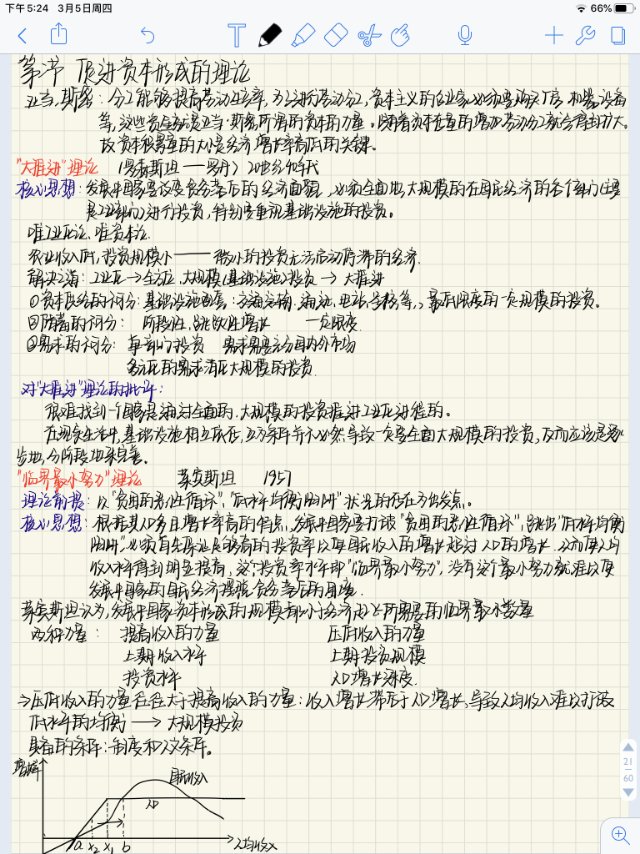 下午5:24 3月5日周四
66%
第二节 促进资本形成的理论
亚当·斯密：分工能够提高劳动生产率，为了进行劳动分工，资本主义的企业家必须要购买厂房、机器设备
等，这些资金就是亚当·斯密所谓的资本的力量。随着资本存量的增加劳动分工就会得到扩大。
故资本积累量的大小是经济增长率高低的关键。
"大推进"理论 （罗森斯坦——罗丹）20世纪40年代
核心思想：发展中国家要改变贫穷落后的经济面貌，必须全面地大规模的在国民经济的各个部门尤其
是工业部门进行投资，特别要重视基础设施的投资。
唯工业化论、唯资本论
农业收入低，投资规模小——微小的投资无法启动停滞的经济
解决之道：工业化→全方位，大规模(基础设施)投资→大推进
①资本供给的不可分：基础设施酉享：交通运输、通讯、电站、学校等，最低限度的一定规模的投资。
②储蓄的不可分：阶段性，跳跃性增长 一定限度
③需求的不可分：单部门投资 需求需要充分国内外市场
多元化的需求需大规模的投资
对"大推进"理论的批评：
很难找到一个国家是通过全面的、大规模的投资推进工业化进程的。
在现实生活中，基础设施相互依存，互为条件并不必然导致一定要全面大规模的投资，反而应该是逐
步地，分阶段地来完善。
"临界最小努力"理论 莱宾斯坦 1957
理论前提：以"贫困的恶性循环"，"低水平均衡陷阱"状况的存在为出发点。
核心思想：根据其人口多且增长率高的特点，发展中国家要打破"贫困的恶性循环"，跳出"低水平均衡
陷阱"，必须首先保证足够高的投资率以使国民收入的增长超过人口的增长，从而使人均
收入水平得到明显提高，这个投资率水平即"临界最小努力"，没有这个最小努力就难以使
发展中国家的国民经济摆脱贫穷落后的困境。
莱宾斯坦认为，发展中国家资本形成的规模都小于经济起飞所需要的临界最小数量
两种力量： 提高收入的力量 压低收入的力量
上期收入水平 上期投资规模
投资水平 人口增长速度
→压低收入的力量往往大于提高收入的力量：收入增长滞后于人口增长，导致人均收入难以打破
低水平的均衡——→大规模投资
具备的条件：制度和人文条件。
增长率
国民收入
人口
a x₂ x₁ b
人均收入
21
60